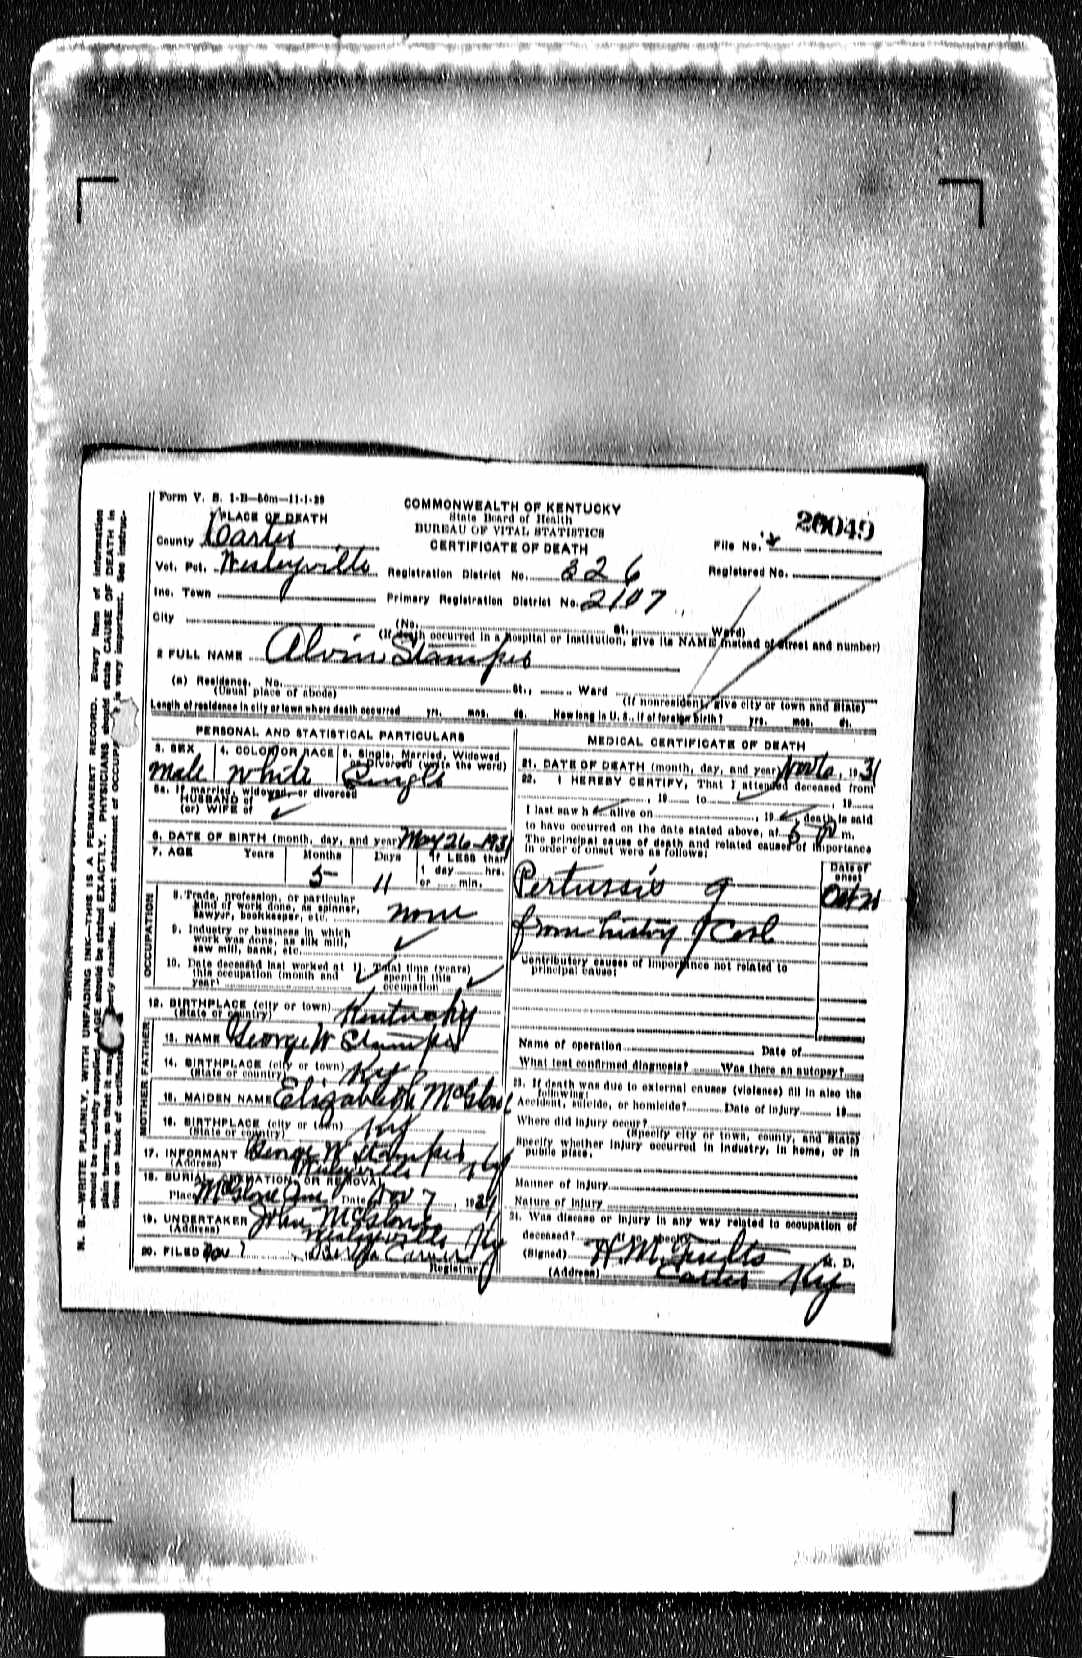 Form V. S. 1-B—50m—11-1-29
COMMONWEALTH OF KENTUCKY
State Board of Health
BUREAU OF VITAL STATISTICS
CERTIFICATE OF DEATH
File No.
Registered No.
1 PLACE OF DEATH
County Carter
Vot. Pct. Wesleyville
Registration District No. 326
Inc. Town
Primary Registration District No. 2107
City
(No. St., Ward)
(If death occurred in a hospital or institution, give its NAME instead of street and number)
2 FULL NAME Alvin Stamper
(a) Residence. No. St., Ward
(Usual place of abode) (If nonresident, give city or town and State)
Length of residence in city or town where death occurred yrs. mos. ds. How long in U. S., if of foreign birth? yrs. mos. ds.
PERSONAL AND STATISTICAL PARTICULARS
3. SEX Male
4. COLOR OR RACE White
5. Single, Married, Widowed or Divorced (write the word) Single
5a. If married, widowed, or divorced
HUSBAND of
(or) WIFE of
6. DATE OF BIRTH (month, day, and year) May 26-1931
7. AGE Years Months Days If LESS than
5 11 1 day hrs.
or min.
OCCUPATION
8. Trade, profession, or particular
kind of work done, as spinner,
sawyer, bookkeeper, etc. none
9. Industry or business in which
work was done, as silk mill,
saw mill, bank, etc.
10. Date deceased last worked at
this occupation (month and
year)
11. Total time (years)
spent in this
occupation
12. BIRTHPLACE (city or town)
(State or country) Kentucky
FATHER
13. NAME George W Stamper
14. BIRTHPLACE (city or town)
(State or country) Ky
MOTHER
15. MAIDEN NAME Elizabeth McGlone
16. BIRTHPLACE (city or town)
(State or country) Ky
17. INFORMANT George W Stamper
(Address) Wesleyville Ky
18. BURIAL, CREMATION, OR REMOVAL
Place McGlone Date Nov 7, 1931
19. UNDERTAKER John McGlone
(Address) Wesleyville Ky
20. FILED Nov
Registrar
MEDICAL CERTIFICATE OF DEATH
21. DATE OF DEATH (month, day, and year) Nov 6, 1931
22. I HEREBY CERTIFY, That I attended deceased from
, 19 to , 19
I last saw h alive on , 19 death is said
to have occurred on the date stated above, at 5 P m.
The principal cause of death and related causes of importance
in order of onset were as follows:
Date of onset
Pertussis
from history of
Contributory causes of importance not related to
principal cause:
Name of operation Date of
What test confirmed diagnosis? Was there an autopsy?
23. If death was due to external causes (violence) fill in also the
following:
Accident, suicide, or homicide? Date of injury 19
Where did injury occur?
(Specify city or town, county, and State)
Specify whether injury occurred in industry, in home, or in
public place.
Manner of injury
Nature of injury
24. Was disease or injury in any way related to occupation of
deceased? If so, specify
(Signed) H M Fults M. D.
(Address) Carter Ky
N. B.—WRITE PLAINLY, WITH UNFADING INK—THIS IS A PERMANENT RECORD. Every item of information
should be carefully supplied. AGE should be stated EXACTLY. PHYSICIANS should state CAUSE OF DEATH in
plain terms, so that it may be properly classified. Exact statement of OCCUPATION is very important. See instruc-
tions on back of certificate.